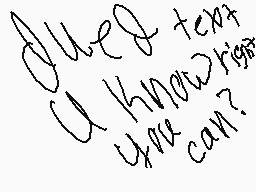 text
U know right
you can?